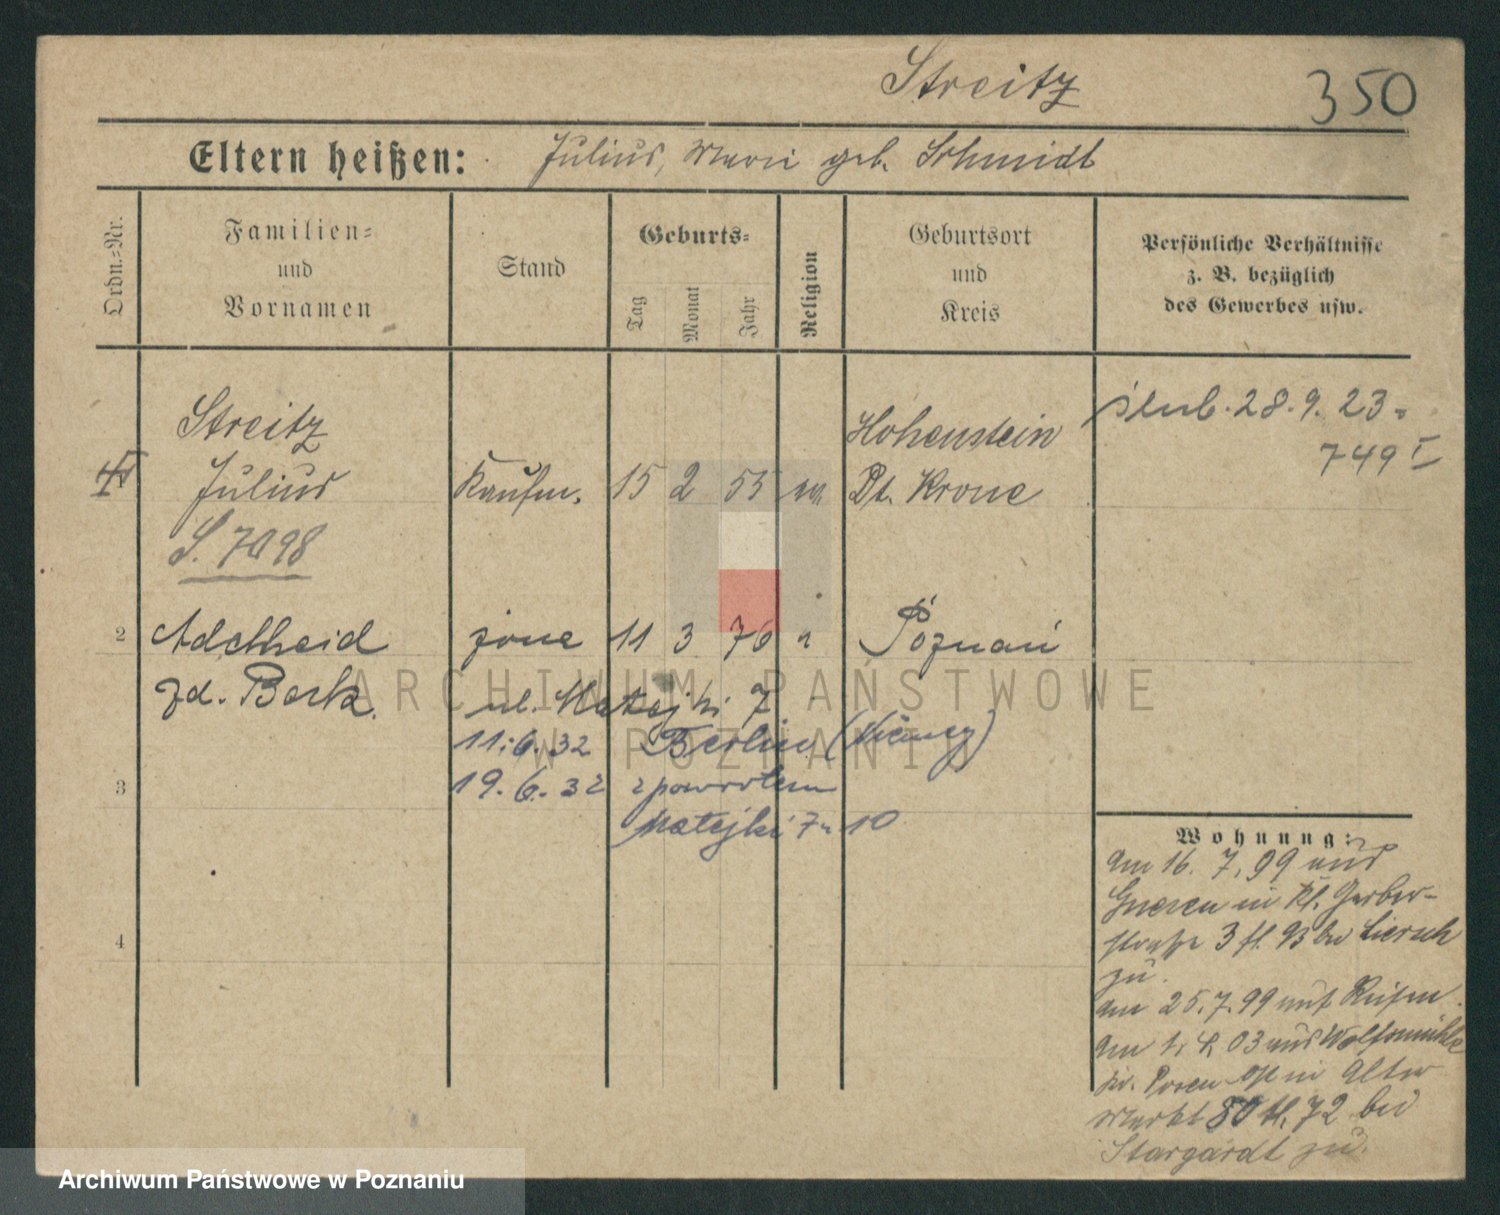 Streitz
350
Eltern heißen: Julius, Marie geb. Schmidt
Ordn.-Nr.
Familien-
und
Vornamen
Stand
Geburts-
Tag
Monat
Jahr
Religion
Geburtsort
und
Kreis
Persönliche Verhältnisse
z. B. bezüglich
des Gewerbes usw.
Streitz
Julius
S. 7098
Kaufm. 15 2 55
Hohenstein
Dt. Krone
ślub. 28.9.23
749 I
2 Adelheid żona 11 3 76 Poznań
zd. Berk.
ul. Matejki 7
11.6.32 Berlin (Niemcy)
3 19.6.32 z powrotem
Matejki 7 10
4
Wohnung:
Am 16. 7. 99 aus
Gnesen in Kl. Gerber-
straße 3 bei Liersch
zu.
am 25.7.99 auf Reisen.
Am 1. 03 aus Wolfsmühle
Kr. Posen in Alter
Markt 80 72 bei
Stargardt zu.
ARCHIWUM PAŃSTWOWE
W POZNANIU
Archiwum Państwowe w Poznaniu